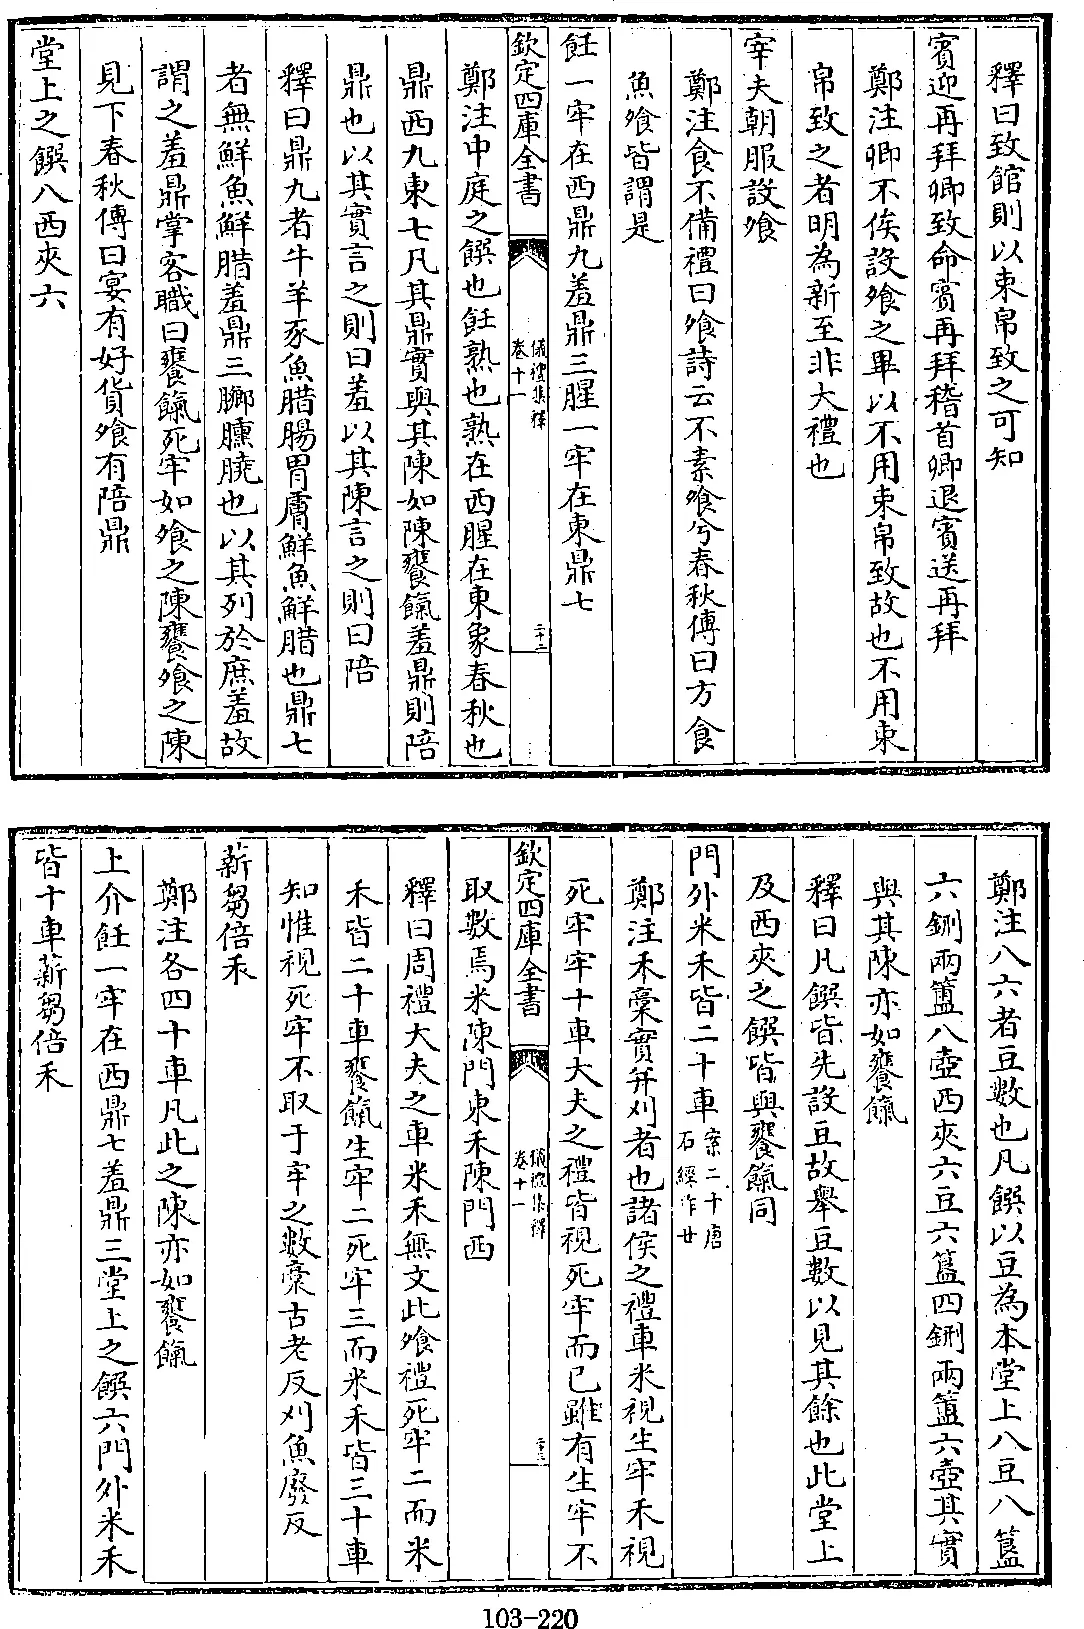 釋曰致館則以束帛致之可知
賓迎再拜卿致命賓再拜稽首卿退賓送再拜
鄭注卿不俟設飧之畢以不用束帛致故也不用束
帛致之者明為新至非大禮也
宰夫朝服設飧
鄭注食不備禮曰飧詩云不素飧兮春秋傳曰方食
魚飧皆謂是
飪一牢在西鼎九羞鼎三腥一牢在東鼎七
欽定四庫全書
儀禮集釋
卷十一
二十二
鄭注中庭之饌也飪熟也熟在西腥在東象春秋也
鼎西九東七凡其鼎實與其陳如陳饔餼羞鼎則陪
鼎也以其實言之則曰羞以其陳言之則曰陪
釋曰鼎九者牛羊豕魚腊腸胃膚鮮魚鮮腊也鼎七
者無鮮魚鮮腊羞鼎三膷臐膮也以其列於庶羞故
謂之羞鼎掌客職曰饔餼死牢如飧之陳饔飧之陳
見下春秋傳曰宴有好貨飧有陪鼎
堂上之饌八西夾六
鄭注八六者豆數也凡饌以豆為本堂上八豆八簋
六鉶兩簠八壺西夾六豆六簋四鉶兩簠六壺其實
與其陳亦如饔餼
釋曰凡饌皆先設豆故舉豆數以見其餘也此堂上
及西夾之饌皆與饔餼同
門外米禾皆二十車案二十唐石經作廿
鄭注禾稾實并刈者也諸侯之禮車米視生牢禾視
死牢牢十車大夫之禮皆視死牢而已雖有生牢不
欽定四庫全書
儀禮集釋
卷十一
二十三
取數焉米陳門東禾陳門西
釋曰周禮大夫之車米禾無文此飧禮死牢二而米
禾皆二十車饔餼生牢二死牢三而米禾皆三十車
知惟視死牢不取于牢之數稾古老反刈魚廢反
薪芻倍禾
鄭注各四十車凡此之陳亦如饔餼
上介飪一牢在西鼎七羞鼎三堂上之饌六門外米禾
皆十車薪芻倍禾
103-220